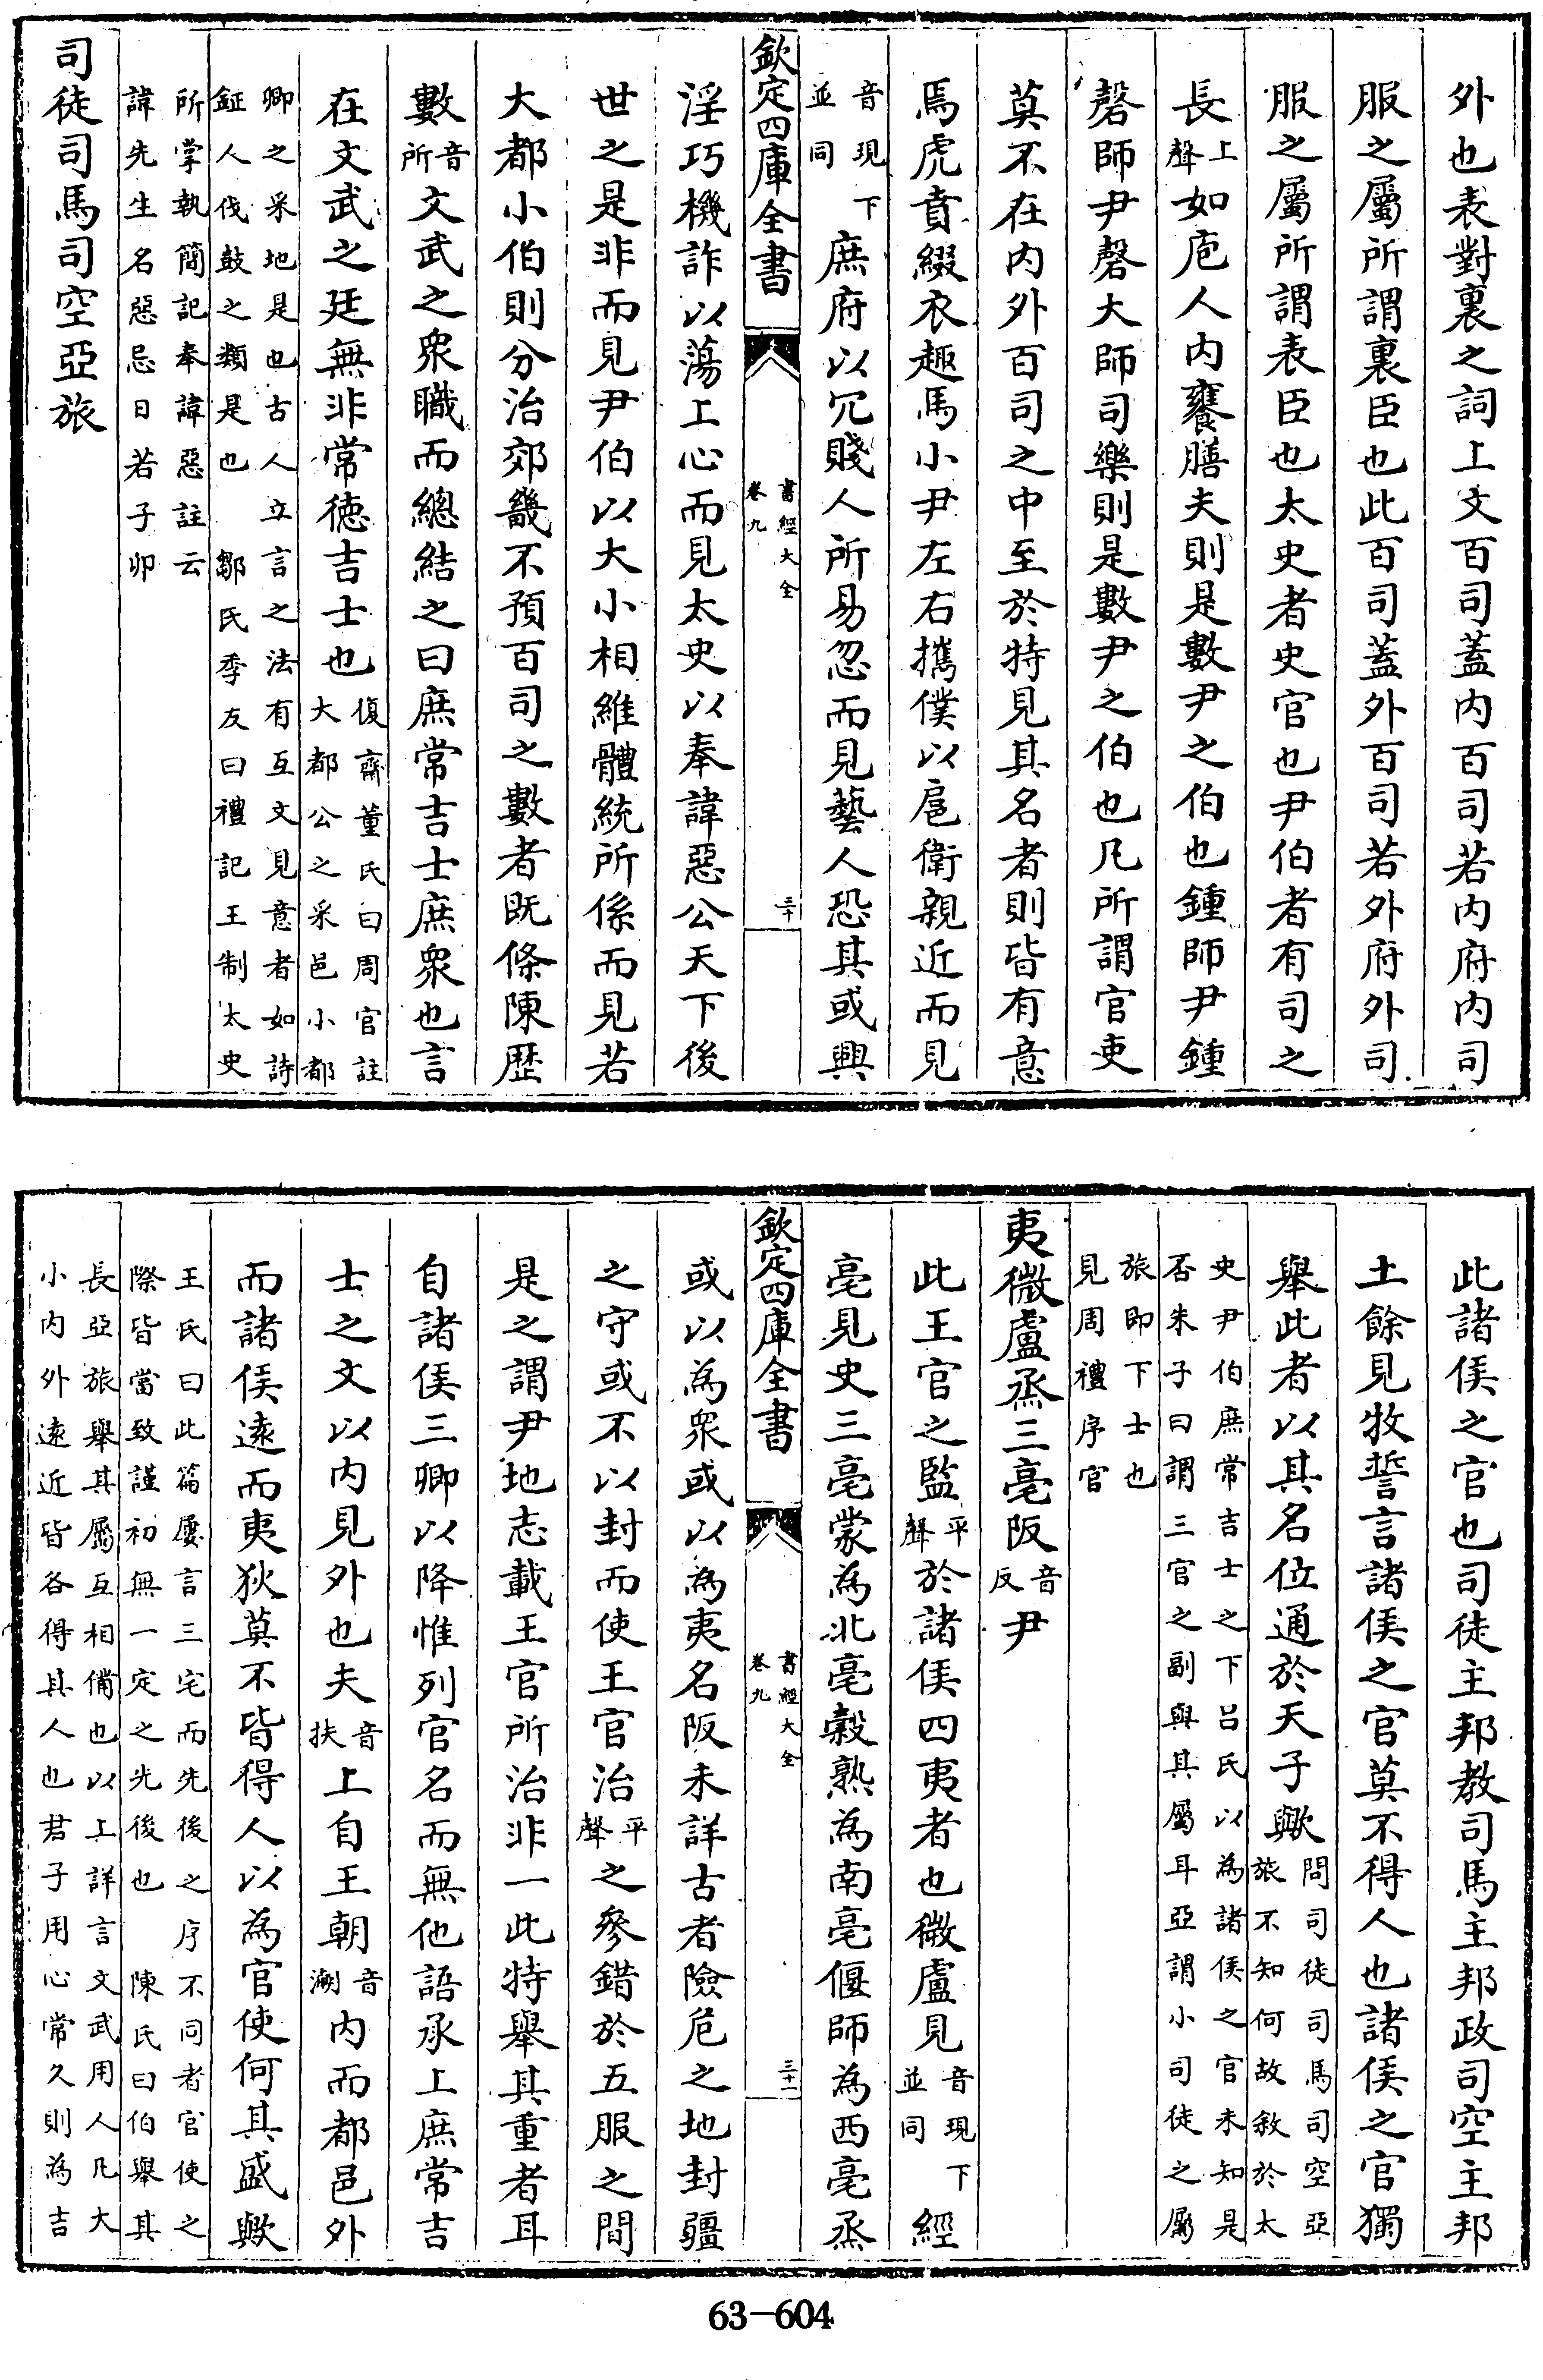 外也表對裏之詞上文百司蓋内百司若内府内司
服之屬所謂裏臣也此百司蓋外百司若外府外司
服之屬所謂表臣也太史者史官也尹伯者有司之
長上聲如庖人内饔膳夫則是數尹之伯也鍾師尹鍾
磬師尹磬大師司樂則是數尹之伯也凡所謂官吏
莫不在内外百司之中至於特見其名者則皆有意
焉虎賁綴衣趣馬小尹左右攜僕以扈衛親近而見
音現下並同庶府以冗賤人所易忽而見藝人恐其或興
欽定四庫全書 書經大全卷九 三十
淫巧機詐以蕩上心而見太史以奉諱惡公天下後
世之是非而見尹伯以大小相維體統所係而見若
大都小伯則分治郊畿不預百司之數者既條陳歷
數音所文武之衆職而總結之曰庶常吉士庶衆也言
在文武之廷無非常德吉士也復齋董氏曰周官註大都公之采邑小都
卿之采地是也古人立言之法有互文見意者如詩
鉦人伐鼓之類是也 鄒氏季友曰禮記王制太史
所掌執簡記奉諱惡註云
諱先生名惡忌日若子卯
司徒司馬司空亞旅
此諸侯之官也司徒主邦教司馬主邦政司空主邦
土餘見牧誓言諸侯之官莫不得人也諸侯之官獨
舉此者以其名位通於天子歟問司徒司馬司空亞旅不知何故敘於太
史尹伯庶常吉士之下呂氏以為諸侯之官未知是
否朱子曰謂三官之副與其屬耳亞謂小司徒之屬
旅即下士也
見周禮序官
夷微盧烝三亳阪音反尹
此王官之監平聲於諸侯四夷者也微盧見音現下並同經
亳見史三亳蒙為北亳穀熟為南亳偃師為西亳烝
欽定四庫全書 書經大全卷九 三十一
或以為衆或以為夷名阪未詳古者險危之地封疆
之守或不以封而使王官治平聲之參錯於五服之間
是之謂尹地志載王官所治非一此特舉其重者耳
自諸侯三卿以降惟列官名而無他語承上庶常吉
士之文以内見外也夫音扶上自王朝音潮内而都邑外
而諸侯遠而夷狄莫不皆得人以為官使何其盛歟
王氏曰此篇屢言三宅而先後之序不同者官使之
際皆當致謹初無一定之先後也 陳氏曰伯舉其
長亞旅舉其屬互相備也以上詳言文武用人凡大
小内外遠近皆各得其人也君子用心常久則為吉
63-604